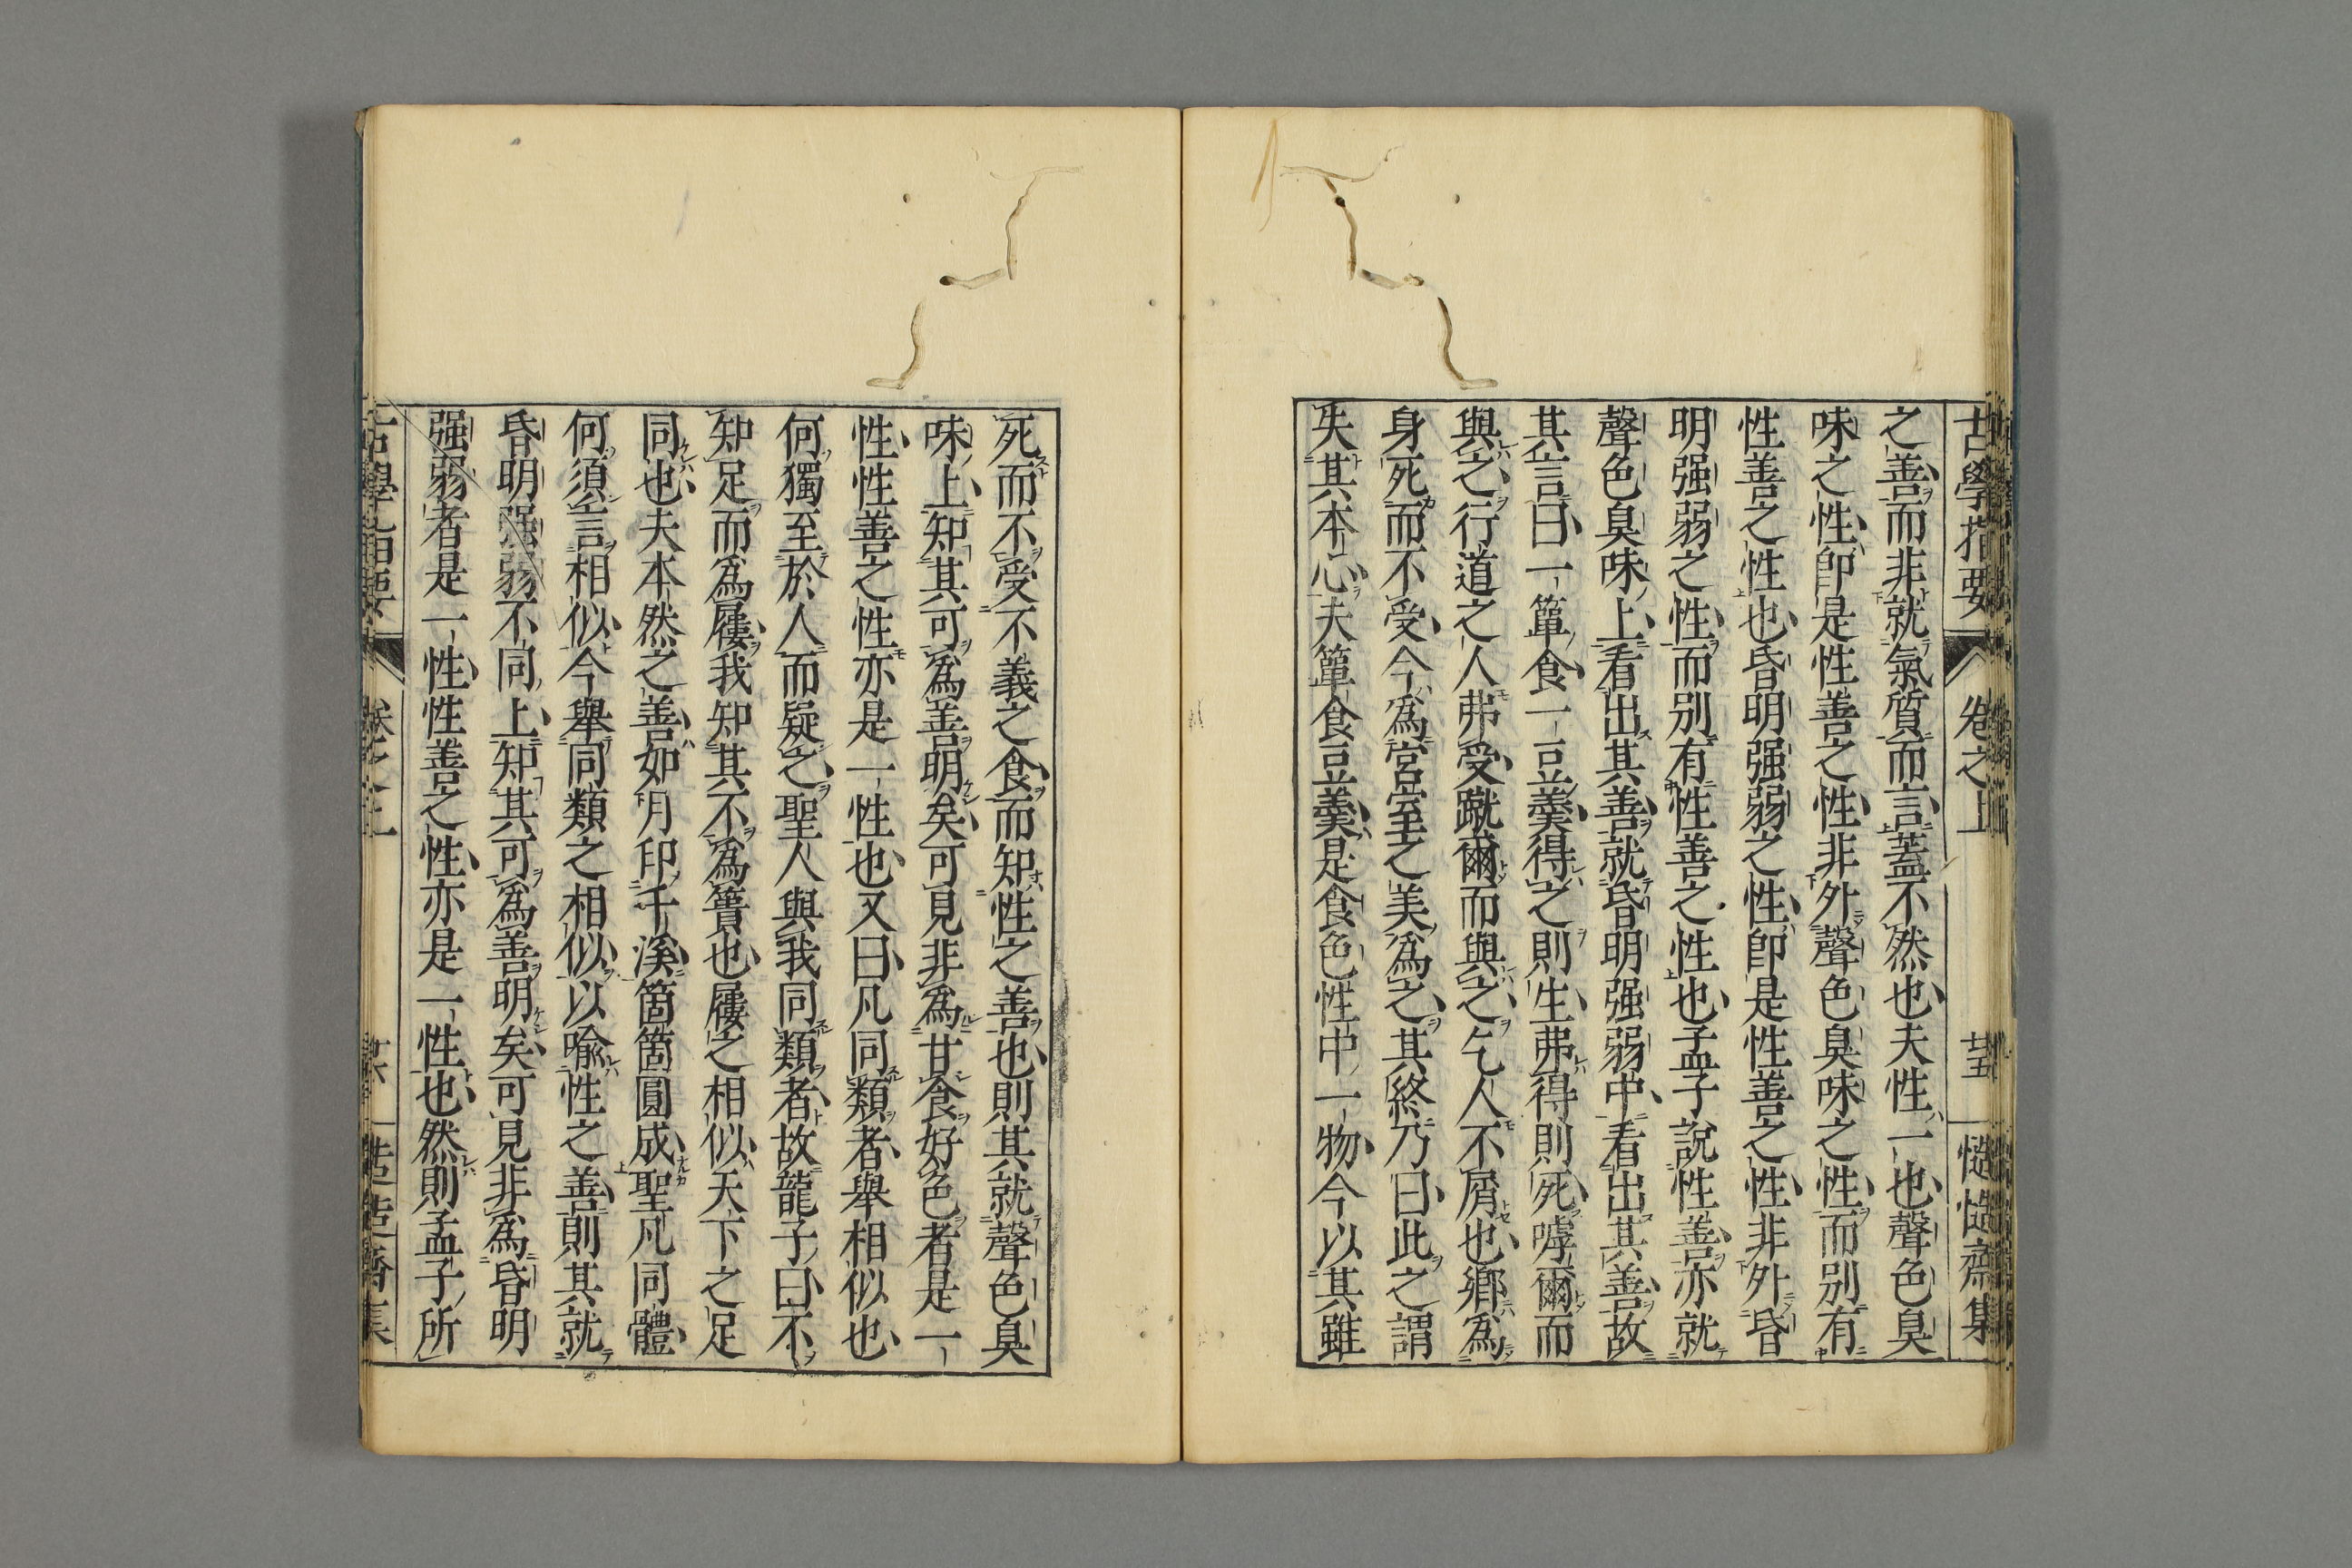 古學指要 卷之上 廿五 慥慥齋集
之善而非就氣質而言蓋不然也夫性一也聲色臭
味之性即是性善之性非外聲色臭味之性而別有
性善之性也昏明强弱之性即是性善之性非外昏
明强弱之性而別有性善之性也孟子說性善亦就
聲色臭味上看出其善就昏明强弱中看出其善故
其言曰一簞食一豆羹得之則生弗得則死嘑爾而
與之行道之人弗受蹴爾而與之乞人不屑也鄉為
身死而不受今為宮室之美為之其終乃曰此之謂
失其本心夫簞食豆羹是食色性中一物今以其雖
死而不受不義之食而知性之善也則其就聲色臭
味上知其可為善明矣可見非為甘食好色者是一
性性善之性亦是一性也又曰凡同類者舉相似也
何獨至於人而疑之聖人與我同類者故龍子曰不
知足而為屨我知其不為蕢也屨之相似天下之足
同也夫本然之善如月印千溪箇箇圓成聖凡同體
何須言相似今舉同類之相似以喩性之善則其就
昏明强弱不同上知其可為善明矣可見非為昏明
强弱者是一性性善之性亦是一性也然則孟子所